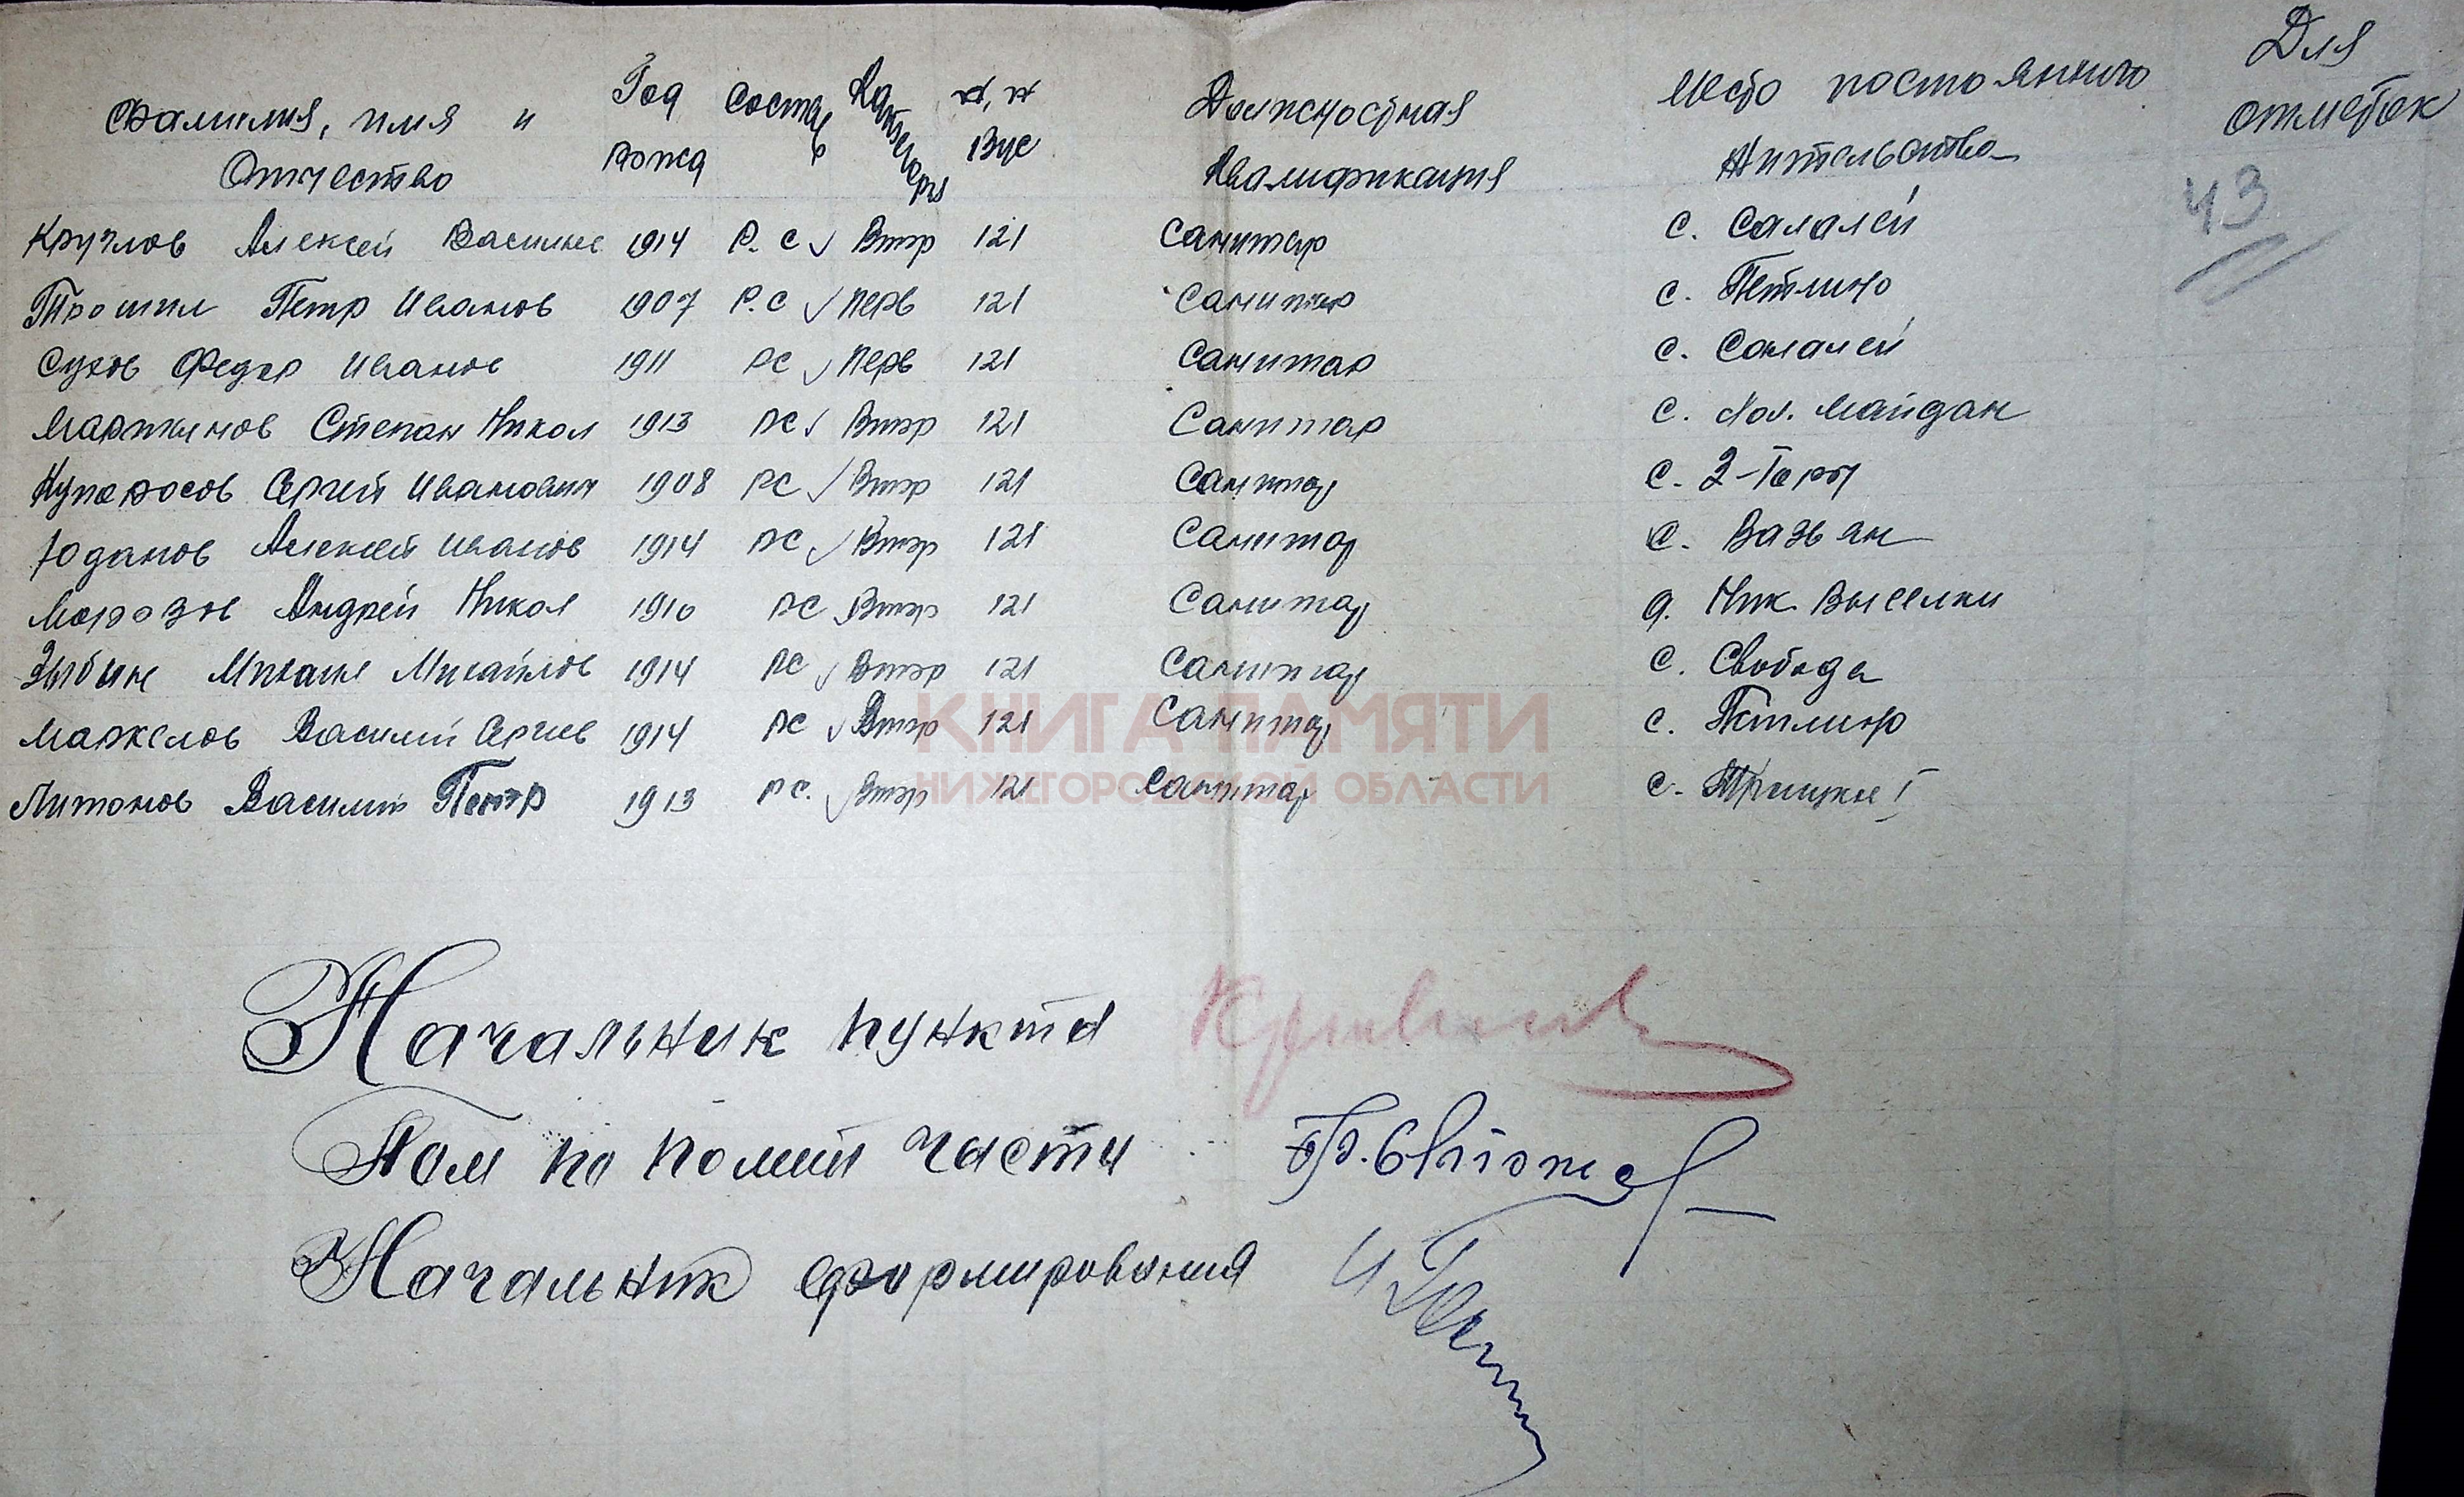 Фамилия, имя и Отчество Год рожд Состав Категория №, № Вус Должностная Квалификация Место постоянного Жительства Для отметок
43
Круглов Алексей Василье 1914 Р. С Втор 121 Санитар с. Салалей
Трошин Петр Иванов 1907 Р. С Перв 121 Санитар с. Петлино
Сухов Федор Иванов 1911 РС Перв 121 Санитар с. Салалей
Мартынов Степан Никол 1913 РС Втор 121 Санитар с. Майдан
Купоросов Сергей Иванович 1908 РС Втор 121 Санитар с. 2-Горы
Юданов Алексей Иванов 1914 РС Втор 121 Санитар с. Вазьян
Морозов Андрей Никол 1910 РС Втор 121 Санитар д. Ник Выселки
Зыбин Михаил Михайлов 1914 РС Втор 121 Санитар с. Свобода
Маркелов Василий Сергеев 1914 РС Втор 121 Санитар с. Петлино
Антонов Василий Петр 1913 РС. Втор 121 Санитар с. Троицкое
КНИГА ПАМЯТИ
НИЖЕГОРОДСКОЙ ОБЛАСТИ
Начальник пункта
Пом по полит части
Начальник формирования